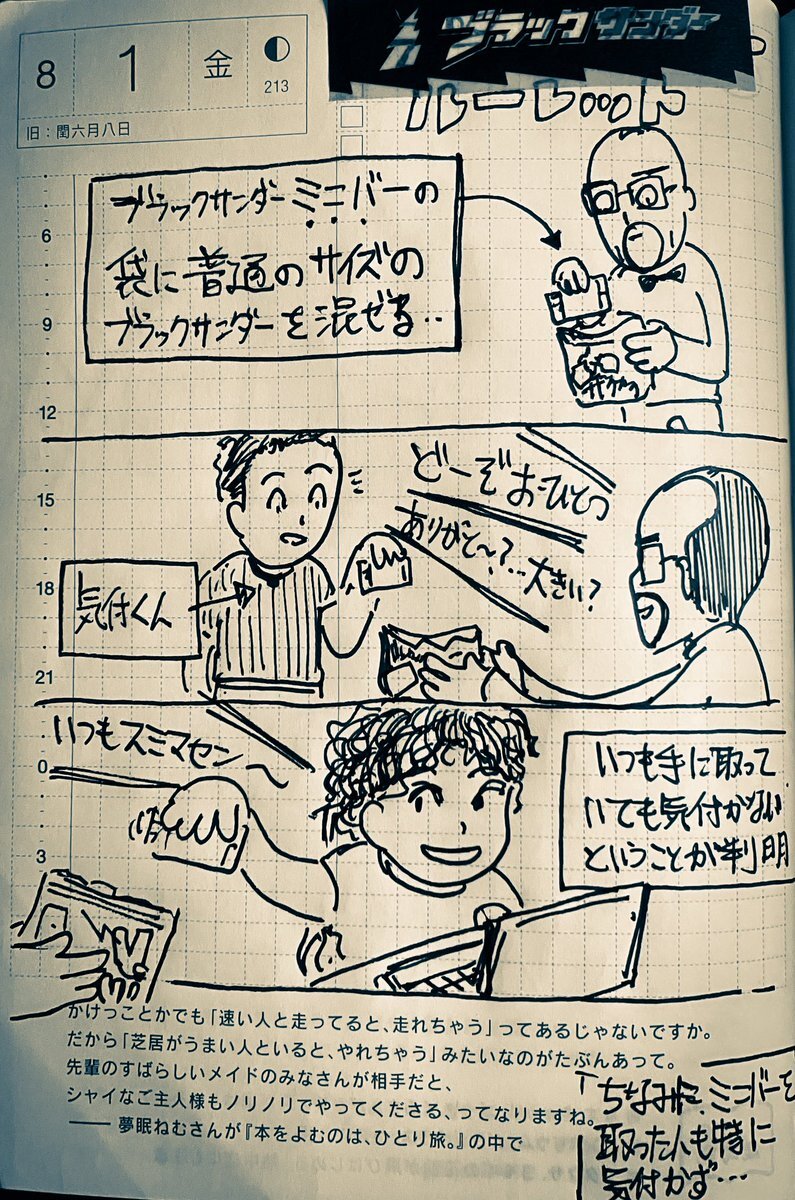 8
1
金
213
旧：閏六月八日
ブラックサンダー
ルーレット
ブラックサンダーミニバーの
袋に普通のサイズの
ブラックサンダーを混ぜる..
6
9
12
どーぞおひとつ
ありがと〜?…大きい?
気付くん
15
18
21
いつもスミマセン〜
いつも手に取って
いても気付かない
ということが判明
0
3
かけっことかでも「速い人と走ってると、走れちゃう」ってあるじゃないですか。
だから「芝居がうまい人といると、やれちゃう」みたいなのがたぶんあって。
先輩のすばらしいメイドのみなさんが相手だと、
シャイなご主人様もノリノリでやってくださる、ってなりますね。
——夢眠ねむさんが『本をよむのは、ひとり旅。』の中で
ちなみに、ミニバーを
取った人も特に
気付かず…